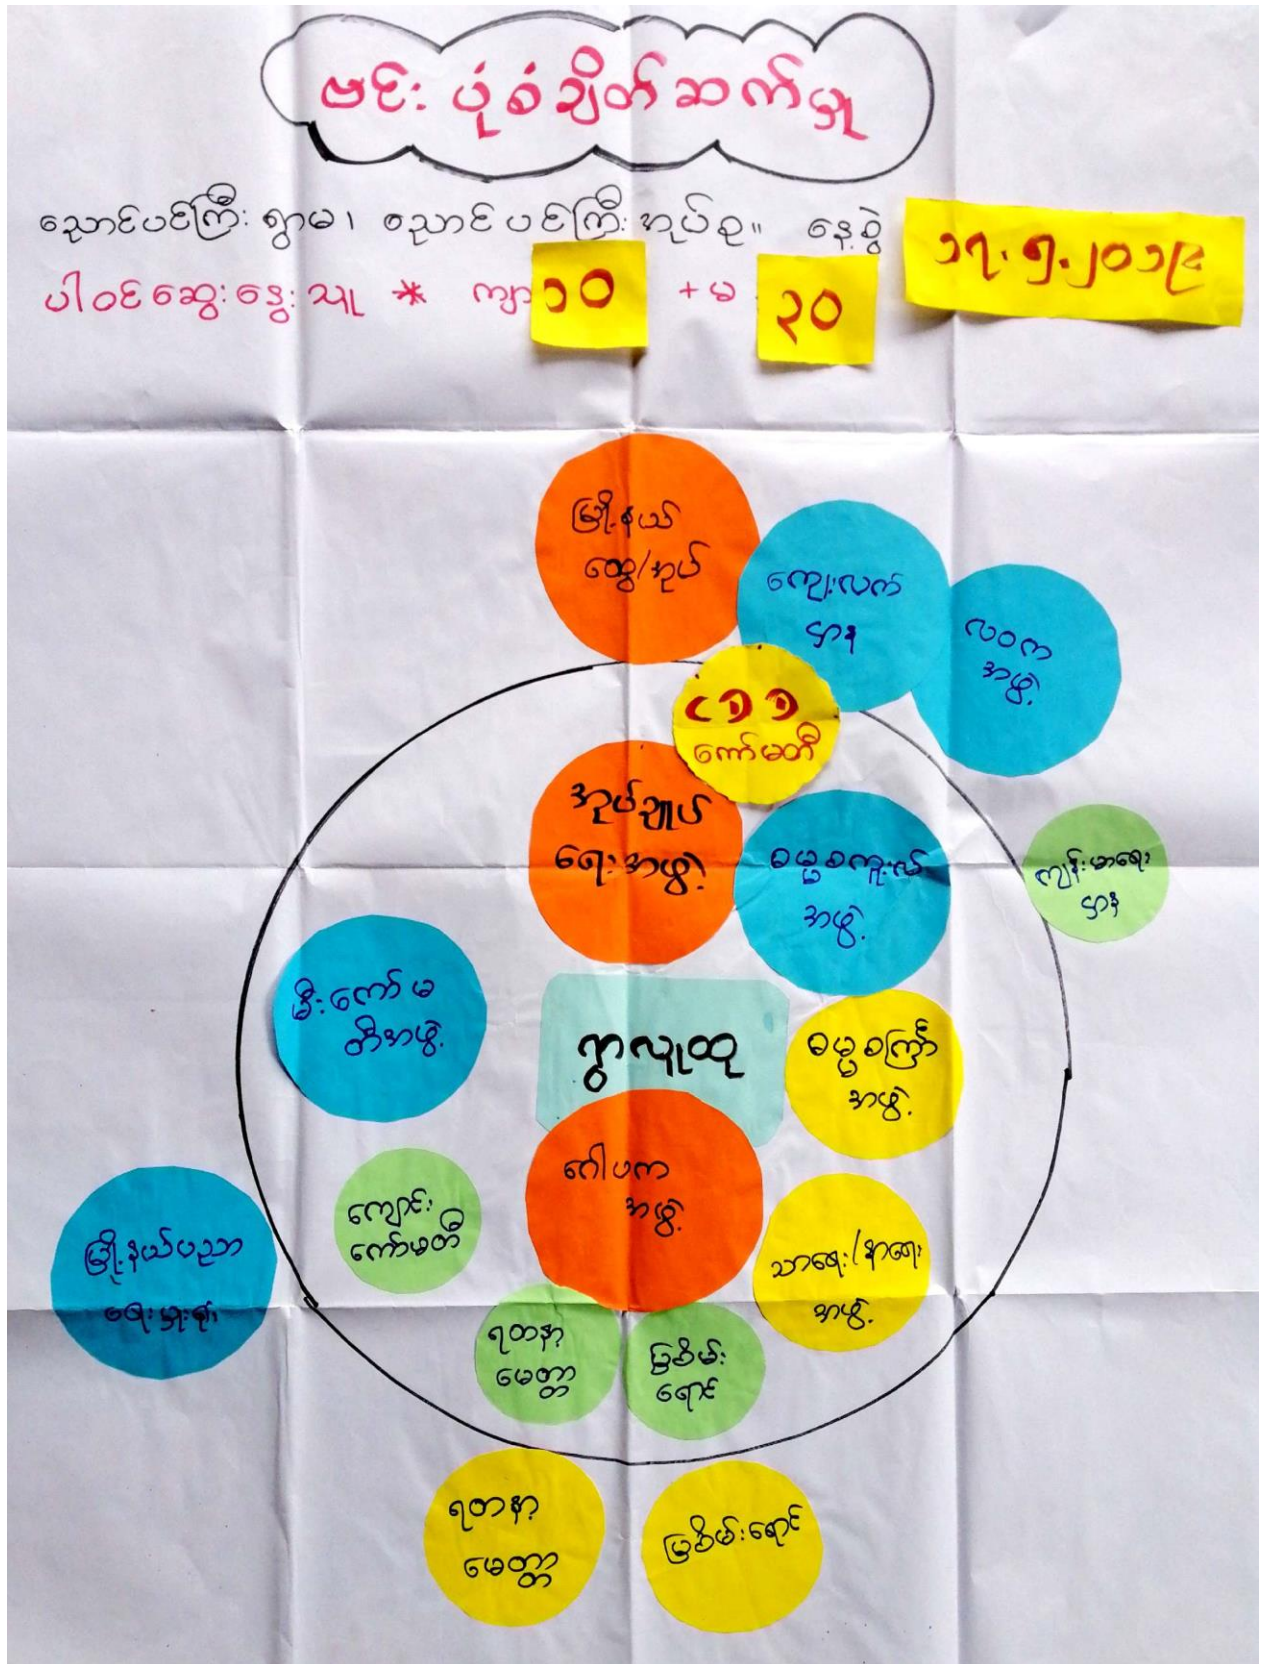 ဗင်းပုံစံချိတ်ဆက်မှု
ညောင်ပင်ကြီးရွာမ၊ ညောင်ပင်ကြီးအုပ်စု။ နေ့စွဲ ၁၇.၅.၂၀၁၉
ပါဝင်ဆွေးနွေးသူ * ကျာ ၁၀ + မ ၃၀
မြို့နယ်
ထွေ/အုပ်
ကျေးလက်
ဌာန
လဝက
အဖွဲ့
ငစစ
ကော်မတီ
အုပ်ချုပ်
ရေးအဖွဲ့
ဓမ္မစကူးလ်
အဖွဲ့
ကျန်းမာရေး
ဌာန
မီးကော်မ
တီအဖွဲ့
ရွာလူထု
ဓမ္မစကြာ်
အဖွဲ့
ဂေါပက
အဖွဲ့
ကျောင်း
ကော်မတီ
မြို့နယ်ပညာ
ရေးမှူးရုံး
သာရေး/နာရေး
အဖွဲ့
ရတနာ့
မေတ္တာ
မြစိမ်း
ရောင်
ရတနာ့
မေတ္တာ
မြစိမ်းရောင်